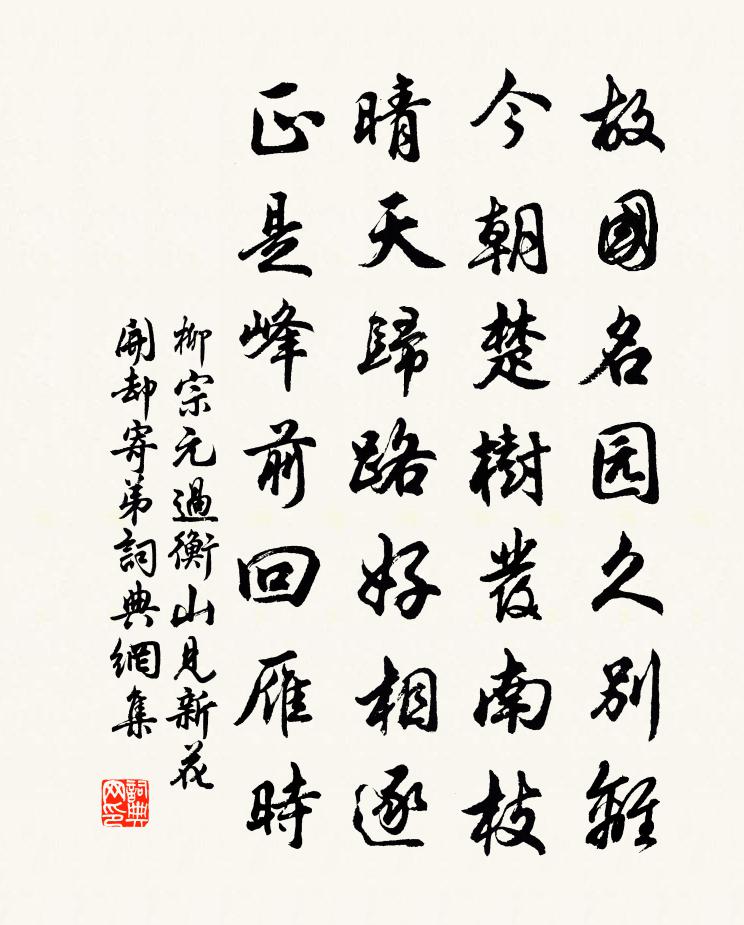 故國名园久别離
今朝楚樹發南枝
晴天歸路好相逐
正是峰前回雁時
柳宗元過衡山見新花
開却寄弟詞典網集
詞典
网印